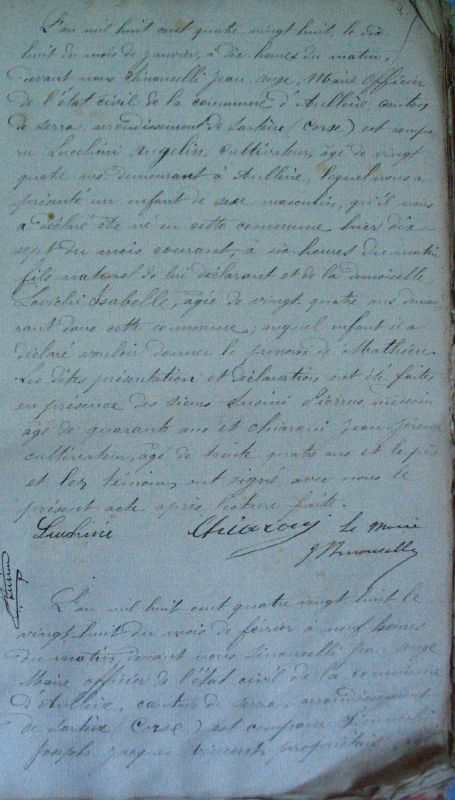 L'an mil huit cent quatre vingt huit, le dix
huit du mois de janvier, à dix heures du matin,
devant nous Simoncelli Jean Ange, Maire Officier
de l'état civil de la commune d'Aullène, canton
de Serra, arrondissement de Sartène (Corse) est compa
ru Lucchini Angelin, cultivateur, âgé de vingt
quatre ans demeurant à Aullène, lequel nous a
présenté un enfant de sexe masculin, qu'il nous
a déclaré être né en cette commune hier dix
sept du mois courant, à six heures du matin,
fils naturel de lui déclarant et de la demoiselle
Isabelle, âgée de vingt quatre ans demeu
rant dans cette commune, auquel enfant il a
déclaré vouloir donner le prénom de Mathieu.
Les dites présentation et déclaration ont été faites
en présence des sieurs Susini Pierre
âgé de quarante ans et Chiaroni Jean
cultivateur, âgé de trente quatre ans et le père
et les témoins ont signé avec nous le
présent acte après lecture faite.
Lucchini Chiaroni le Maire
J Simoncelli
Susini P
L'an mil huit cent quatre vingt huit le
vingt huit du mois de février à neuf heures
du matin, devant nous Simoncelli Jean Ange
Maire officier de l'état civil de la commune
d'Aullène, canton de Serra, arrondissement
de Sartène (Corse) est comparu Simoncelli
Joseph Jacques Vincent, propriétaire,